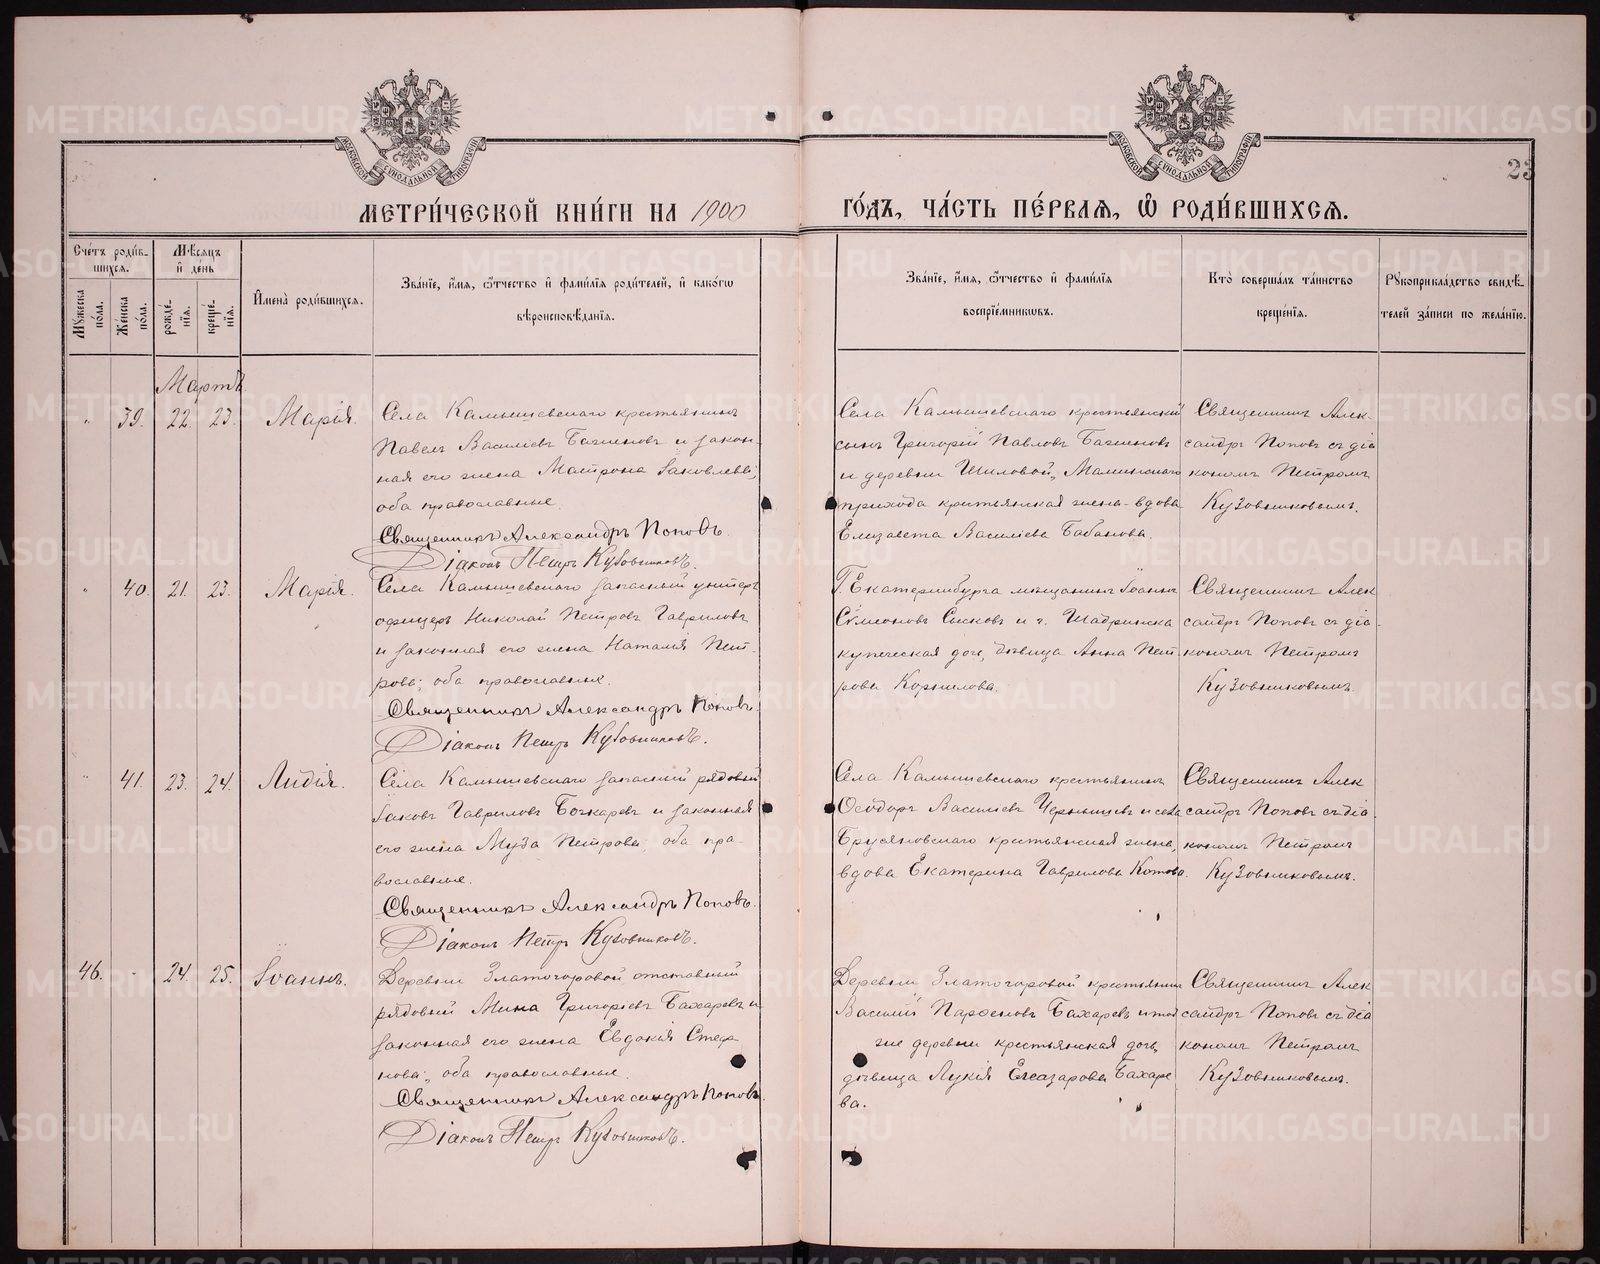 23
МОСКОВСКОЙ СУНОДАЛЬНОЙ ТИПОГРАФІИ
МОСКОВСКОЙ СУНОДАЛЬНОЙ ТИПОГРАФІИ
МЕТРИ́ЧЕСКОЙ КНИ́ГИ НА 1900
ГО́ДЪ, ЧА́СТЬ ПЕ́РВАѦ, Ѡ РОДИ́ВШИХСѦ.
Сче́тъ роди́в-
шихсѧ.
Мꙋжеска по́ла.
Же́нска по́ла.
Мѣ́сѧцъ
и҆ де́нь
рожде́-
нїѧ.
креще́-
нїѧ.
И҆мена̀ роди́вшихсѧ.
Зва́нїе, и҆́мѧ, ѻ҆́тчество и҆ фами́лїѧ роди́телей, и҆ како́гѡ
вѣроисповѣ́данїѧ.
Зва́нїе, и҆́мѧ, ѻ҆́тчество и҆ фами́лїѧ
воспрїе́мникѡвъ.
Кто̀ соверша́лъ та́инство
креще́нїѧ.
Рꙋкоприкла́дство свидѣ́-
телей за́писи по жела́нїю.
Мартъ
" 39. 22. 23. Марія.
Села Камышевскаго крестьянинъ
Павелъ Василіевъ Багиновъ и закон-
ная его жена Матрона Іаковлева;
оба православные.
Священникъ Александръ Поповъ.
Діаконъ Петръ Кузовниковъ.
Села Камышевскаго крестьянскій
сынъ Григорій Павловъ Багиновъ
и деревни Шиловой, Маминскаго
прихода крестьянская жена-вдова
Елизавета Василіева Бабанова.
Священникъ Алек
сандръ Поповъ съ діа
кономъ Петромъ
Кузовниковымъ.
" 40. 21. 23. Марія.
Села Камышевскаго запасный унтеръ
офицеръ Николай Петровъ Гавриловъ
и законная его жена Наталія Пет-
рова; оба православные.
Священникъ Александръ Поповъ.
Діаконъ Петръ Кузовниковъ.
Г. Екатеринбурга мѣщанинъ Іоаннъ
Сѵмеоновъ Сысковъ и г. Шадринска
купеческая дочь, дѣвица Анна Пет
рова Корнилова.
Священникъ Алек
сандръ Поповъ съ діа-
кономъ Петромъ
Кузовниковымъ.
" 41. 23. 24. Лидія.
Села Камышевскаго запасный рядовый
Іаковъ Гавриловъ Бочкаревъ и законная
его жена Муза Петрова, оба пра-
вославные.
Священникъ Александръ Поповъ.
Діаконъ Петръ Кузовниковъ.
Села Камышевскаго крестьянинъ
Ѳеодоръ Василіевъ Чернышевъ и села
Брусяновскаго крестьянская жена,
вдова Екатерина Гаврилова Котова.
Священникъ Алек
сандръ Поповъ съ діа.
кономъ Петромъ
Кузовниковымъ.
46. - 24. 25. Іоаннъ.
Деревни Златогоровой отставный
рядовый Мина Григоріевъ Бахаревъ и
законная его жена Евдокія Стефа
нова; оба православные.
Священникъ Александръ Поповъ.
Діаконъ Петръ Кузовниковъ.
Деревни Златогоровой крестьянинъ
Василій Парѳеновъ Бахаревъ и той
же деревни крестьянская дочь,
дѣвица Лукія Елеазарова Бахаре
ва.
Священникъ Алек
сандръ Поповъ съ діа
кономъ Петромъ
Кузовниковымъ.
METRIKI.GASO-URAL.RU